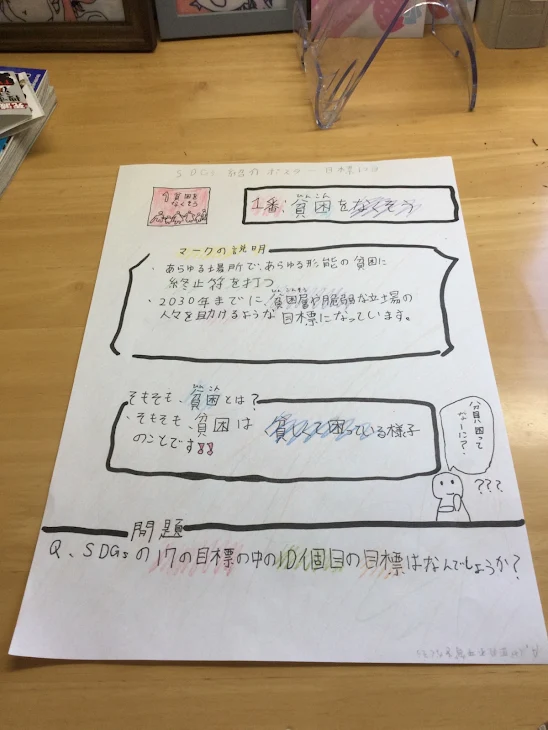 貧困を
なくそう
1番:貧困をなくそう
マークの説明
・あらゆる場所で、あらゆる形態の貧困に
終止符を打つ
・2030年までに、貧困層や脆弱な立場の
人々を助けるような目標になっています。
そもそも、貧困とは?
・そもそも、貧困は 貧しくて困っている様子
のことです!!
貧困って
なーに?
???
問題
Q、SDGsの17の目標の中の10個目の目標はなんでしょうか?